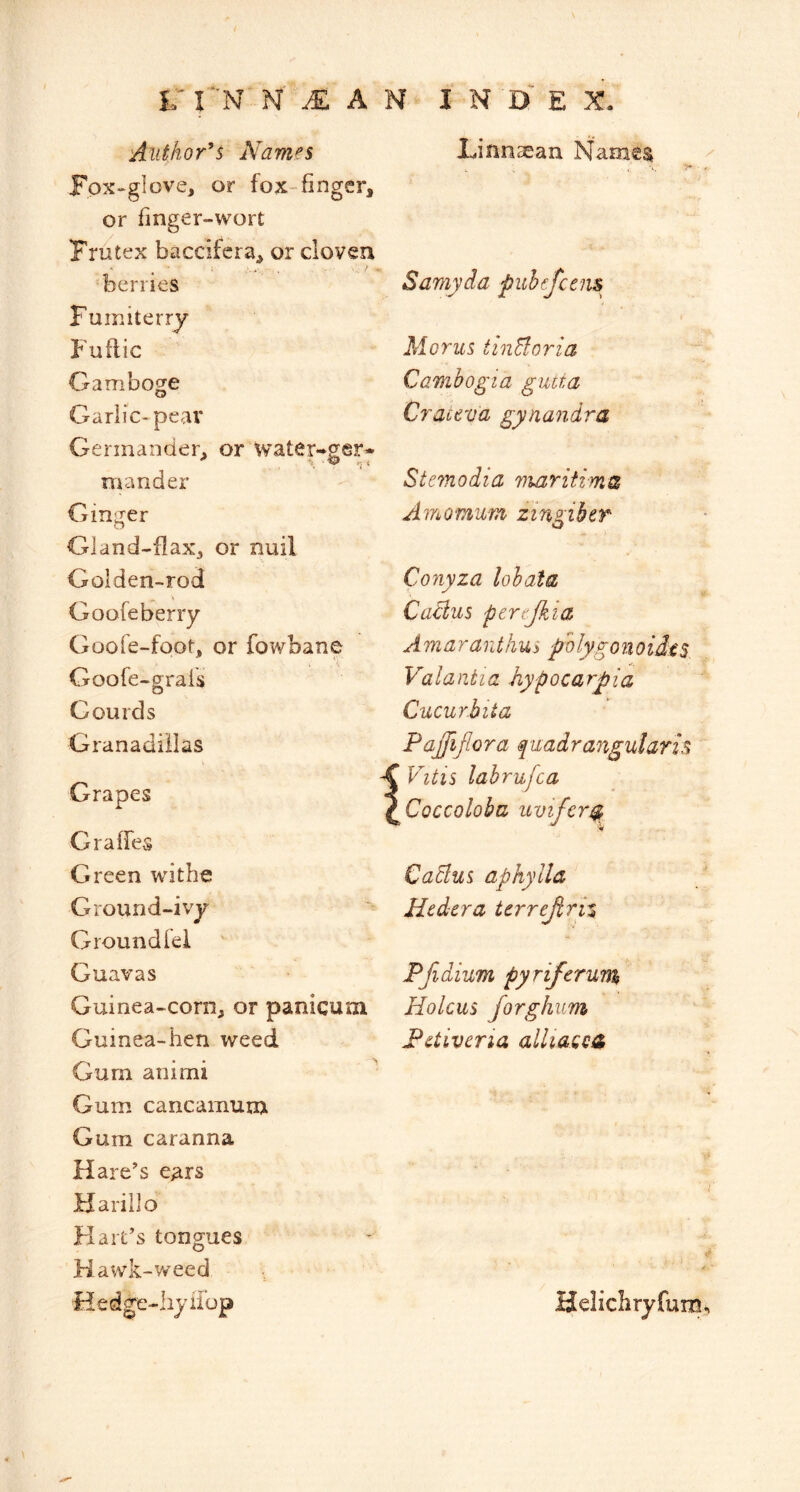 LINNÆAN INDEX.
Author's Names Linnæan Names
Fox-glove, or fox-finger,
or finger-wort
Frutex baccifera, or cloven
berries Samyda pubeſcens
Fumiterry
Fuſtic Morus tinctoria
Gamboge Cambogia gutta
Garlic-pear Crateva gynandra
Germander, or water-ger-
mander Stemodia maritima
Ginger Amomum zingiber
Gland-flax, or nuil
Golden-rod Conyza lobata
Gooſeberry Cactus pereſkia
Gooſe-foot, or ſowbane Amaranthus polygonoides
Gooſe-graſs Valantia hypocarpia
Gourds Cucurbita
Granadillas Paſſiflora quadrangularis
Grapes { Vitis labruſca
Coccoloba uvifera
Graſſes
Green withe Cactus aphylla
Ground-ivy Hedera terreſtris
Groundſel
Guavas Pſidium pyriferum
Guinea-corn, or panicum Holcus ſorghum
Guinea-hen weed Petiveria alliacea
Gum animi
Gum cancamum
Gum caranna
Hare's ears
Harillo
Hart's tongues
Hawk-weed
Hedge-hyſſop
Helichryſum,